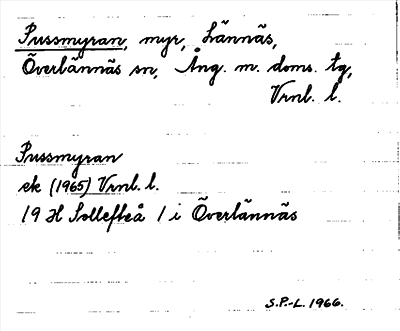 Pussmyran, myr, Lännäs,
Överlännäs sn, Ång. m. doms. tg,
Vrnl. l.
Pussmyran
ek (1965) Vrnl. l.
19 H Sollefteå 1 i Överlännäs
S.P.-L. 1966.